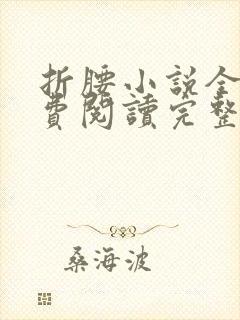 折腰小説全
費閱讀完整
桑海波